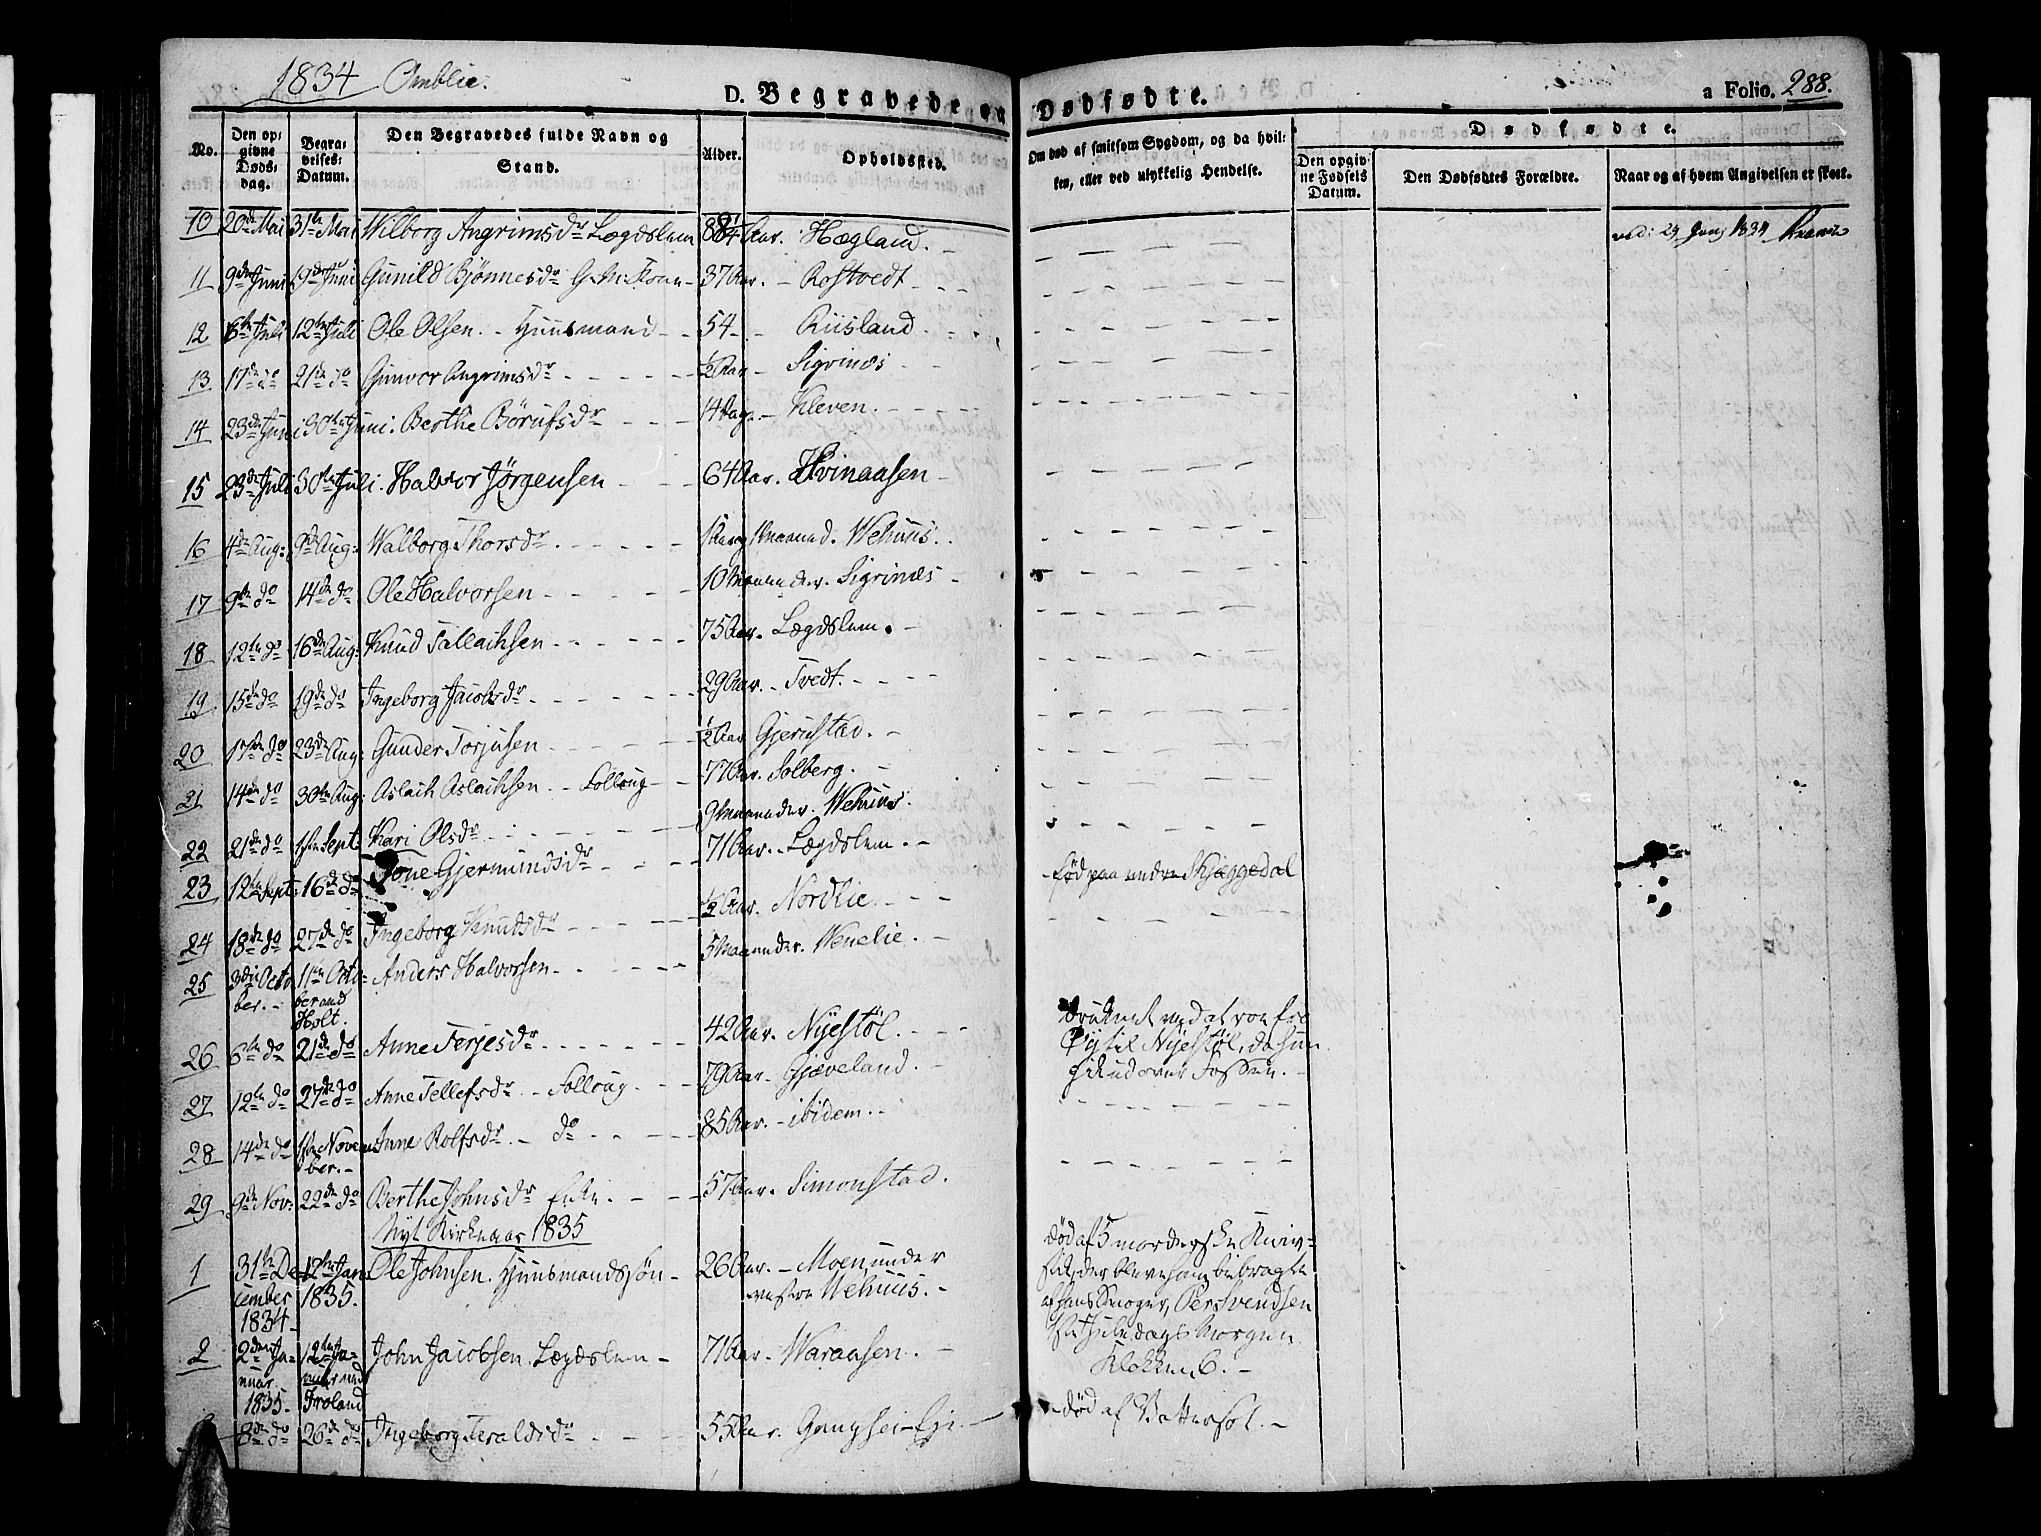 1834 Omblie.
D. Begravede og Dødfødte.
a Folio. 288.
No.
Den opgivne Døds-dag.
Begra-velses-Datum.
Den Begravedes fulde Navn og Stand.
Alder.
Opholdssted.
Om død af smitsom Sygdom, og da hvil-ken, eller ved ulykkelig Hendelse.
Dødfødte.
Den opgiv-ne Fødsels Datum.
Den Dødfødtes Forældre.
Naar og af hvem Angivelsen er skeet.
10 20de Mai 31te Mai Wilborg Angrimsdr Lægdslem 88 1/4 Aar. Hægland.
11 9de Juni 19de Juni Gunild Bjønnesdr G. M. Kone 37 Aar. Rostvedt
12 6te Juli 12te Juli Ole Olsen. Huusmand 54 Riisland
13 17de do 21de do Gunvor Angrimsdr 1/2 Aar Sigrinæs
14 23de Juni 30te Juni. Berthe Børufsdr 14 Dag. Kleven.
15 23de Juli 30te Juli. Halvor Jørgensen 64 Aar. Hvinaasen
16 4de Aug: 9de Aug: Walborg Thorsdr. 1 Aar og 1 Maaned. Wehuus.
17 9de do 14de do Ole Halvorsen 10 Maaneder. Sigrinæs
18 12te do 16de Aug: Knud Tallachsen 75 Aar. Lægdslem.
19 15de do 19de do Ingeborg Jacobsdr 29 Aar. Tvedt.
20 17de do 23de Aug: Gunder Torjusen 1/2 Aar Gjerustad.
21 14de do 30te Aug: Aslach Aslachsen Folloug 77 Aar. Solberg.
22 21de do 1ste Sept: Kari Olsdr 9 Maaneder. Wehuus.
23 12te Sept: 16de do Tone Gjermundsdr 71 Aar. Lægdslem. fød paa undre Skjeggedal
24 18de do 27de do Ingeborg Knudsdr 1/2 Aar. Nordlie.
25 3die Octo ber. 11te Octo ber ved Holt. Anders Halvorsen 5 Maaneder. Wenelie.
26 6te do 21de do Anne Terjesdr 42 Aar. Nyestøl. druknet ved at roe fra
Øy til Nyestøl, da hun
gik ud over Fossen.
27 12te do 27de do Anne Tellefsdr Folloug 79 Aar. Gjæveland.
28 14de do 1ste Novem ber. Anne Rolfsdr. do 85 Aar. ibidem.
29 9de Nov: 22de do Berthe Johnsdr Enke. 57 Aar. Simonstad.
Nyt Kirkeaar 1835
1 31te De cember 1834 12te Jan: 1835. Ole Johnsen. Huusmandssøn 26 Aar. Moen under vestre Wehuus. død af 5 morderske Kniv-
stik, der bleve ham bibragte
af hans Svoger, Per Svendsen
1ste Juledags Morgen
Klokken 6.
2 2den Ja- nuar. 1835. 12te Ja- nuar ved Froland John Jacobsen Lægdslem 71 Aar. Waraasen.
8de do 26de do Ingeborg Teraldsdr 55 Aar. død af Vattersot.